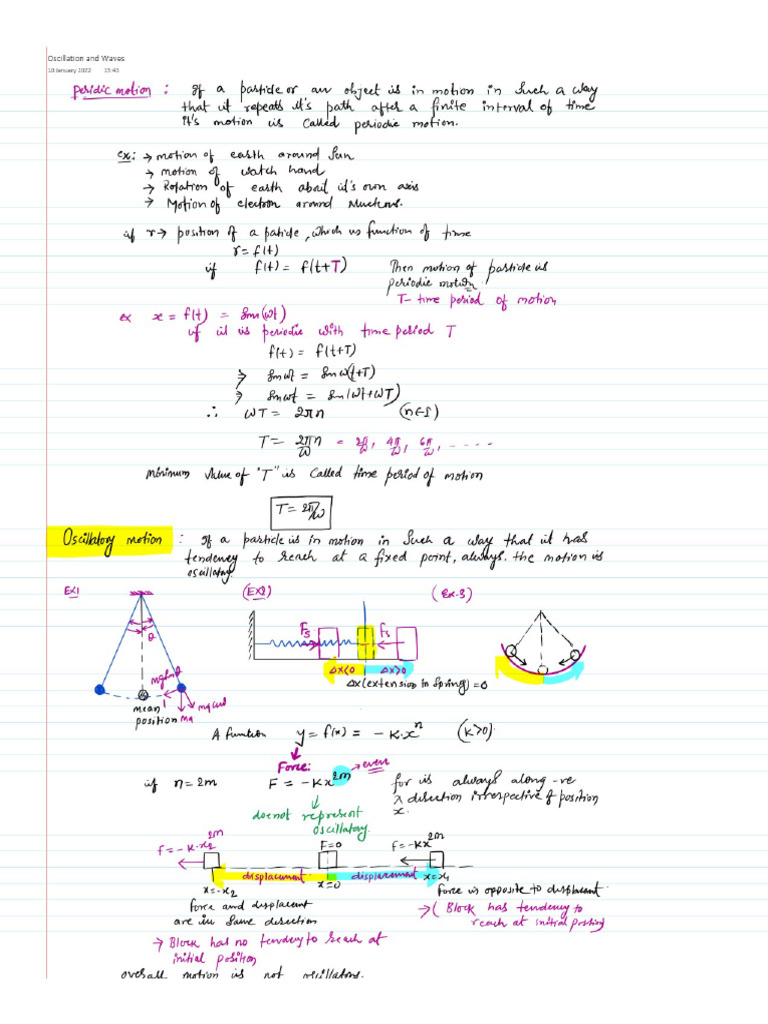 Oscillation and Waves
10 January 2022 15:43
peridic motion : If a particle or an object is in motion in such a way
that it repeats it's path after a finite interval of time
it's motion is called periodic motion.
ex: → motion of earth around Sun
→ motion of watch hand
→ Rotation of earth about it's own axis
→ Motion of electron around Nucleus.
if r → position of a paticle, which is function of time
r = f(t)
if f(t) = f(t+T) Then motion of particle is
periodic motion
T - time period of motion
ex x = f(t) = sin(ωt)
if it is periodic with time period T
f(t) = f(t+T)
⇒ sinωt = sinω(t+T)
⇒ sinωt = sin(ωt+ωT)
∴ ωT = 2πn (n∈I)
T = 2πn/ω = 2π/ω, 4π/ω, 6π/ω, - - - - -
minimum value of "T" is called time period of motion
T = 2π/ω
Oscillatory motion : If a particle is in motion in such a way that it has
tendency to reach at a fixed point, always. the motion is
oscillatory.
EX1 (EX2) (Ex.3)
θ Fs Fs
mg sinθ mg cosθ
mean
position mg
Δx<0 Δx>0
Δx(extension in spring) = 0
A function y = f(x) = -k.x^n (k>0)
Force: even
if n = 2m F = -kx^2m for is always along -ve
x direction irrespective of position
x.
doe not represent
oscillatory.
F = -k.x2^2m F=0 F = -kx^2m
displacement displacement
x=-x2 x=0 x=x1
force and displacent
are in same direction
Force is opposite to displacent.
→ (Block has tendency to
reach at initial position)
→ Block has no tendency to reach at
initial position
overall motion is not oscillatory.